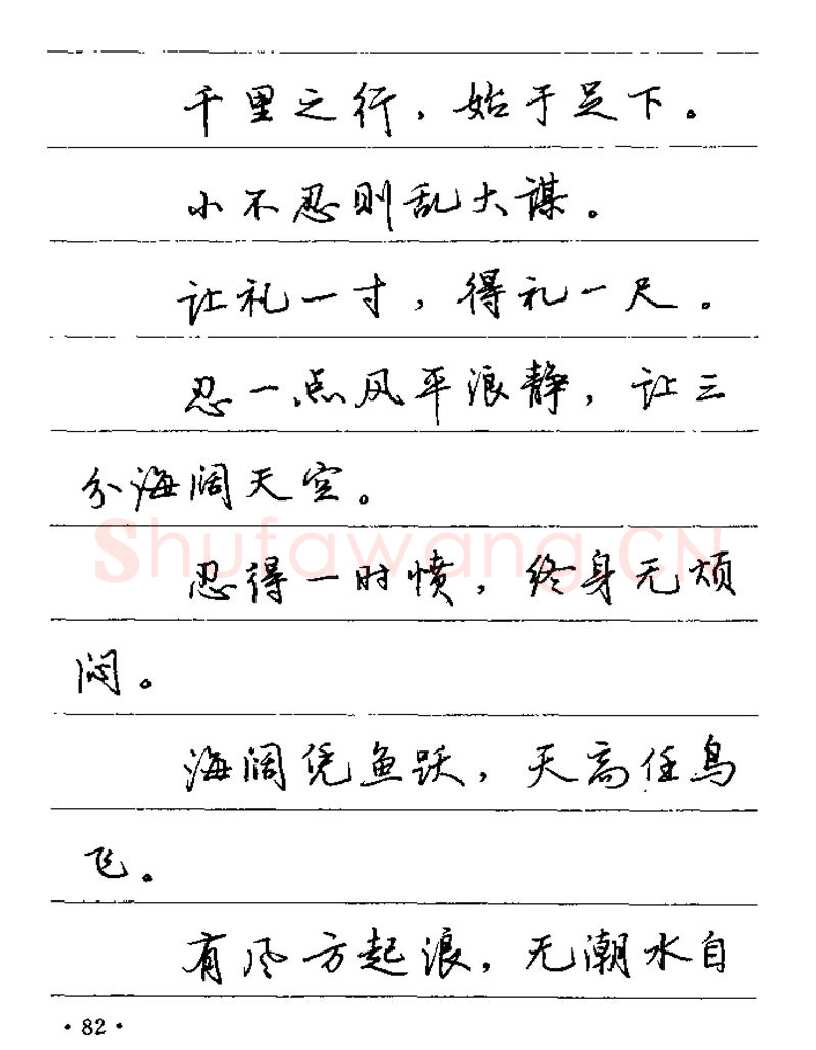 千里之行，始于足下。
小不忍则乱大谋。
让礼一寸，得礼一尺。
忍一点风平浪静，让三
分海阔天空。
shufawang.CN
忍得一时愤，终身无烦
闷。
海阔凭鱼跃，天高任鸟
飞。
有风方起浪，无潮水自
·82·